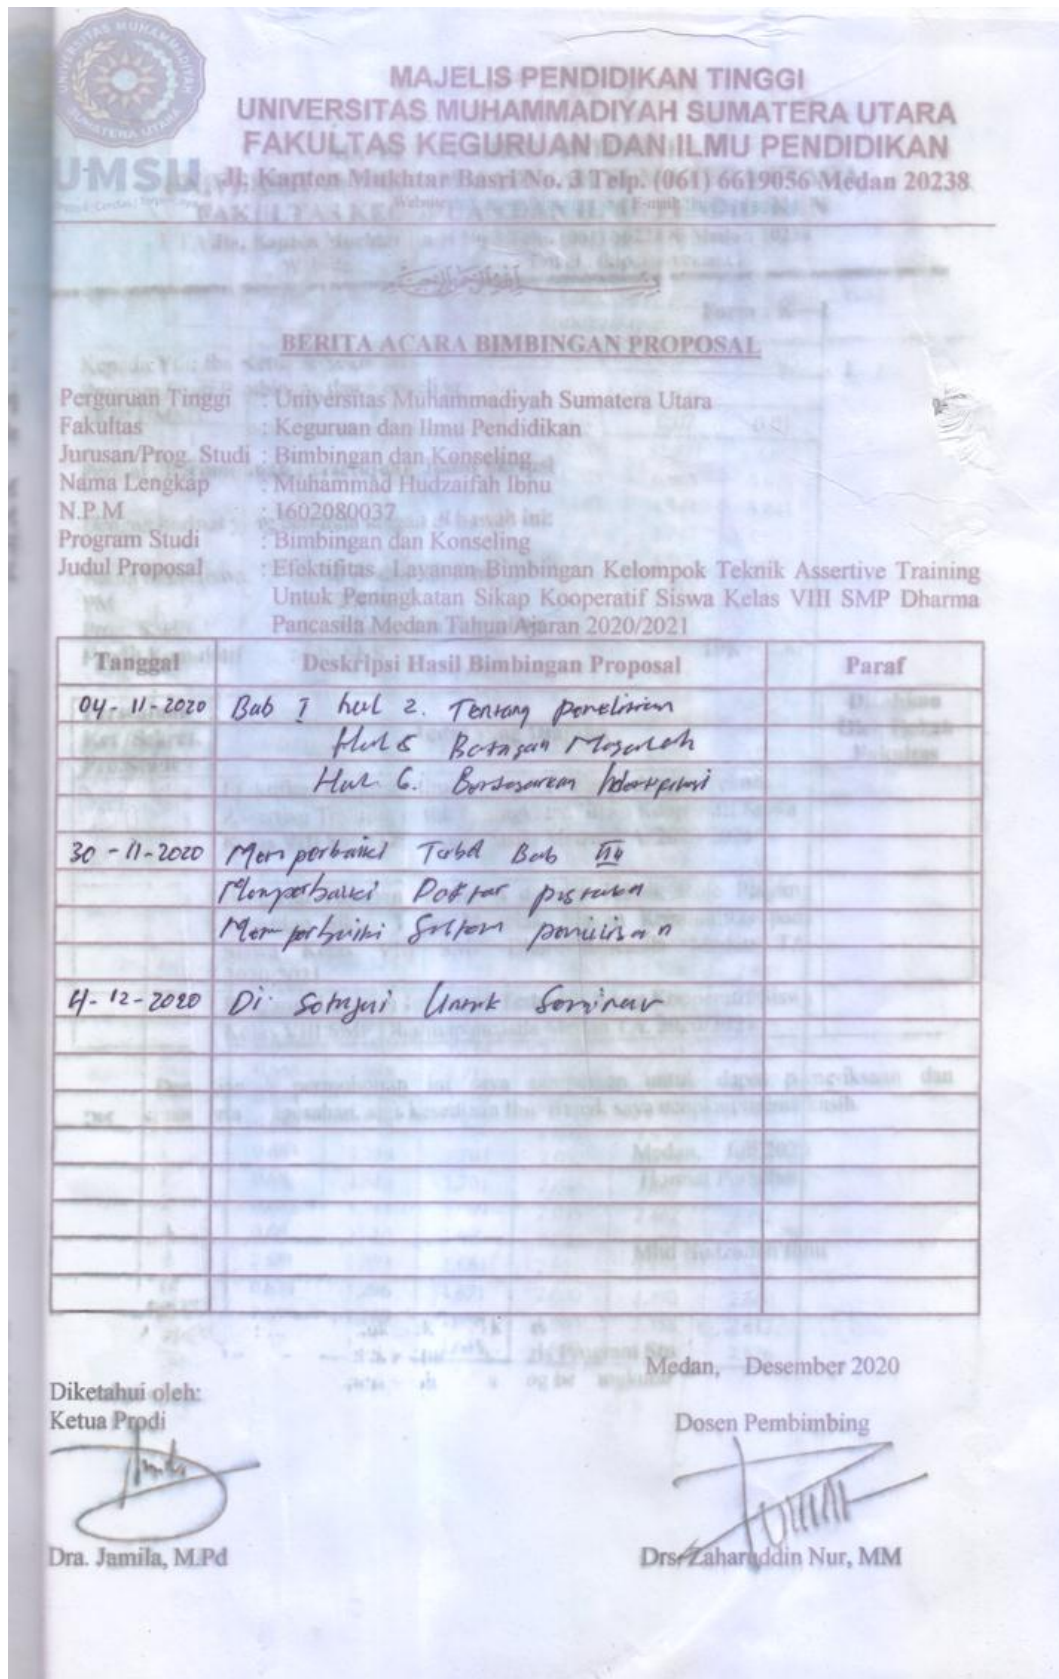 UNIVERSITAS MUHAMMADIYAH
SUMATERA UTARA
UMSU
MAJELIS PENDIDIKAN TINGGI
UNIVERSITAS MUHAMMADIYAH SUMATERA UTARA
FAKULTAS KEGURUAN DAN ILMU PENDIDIKAN
Jl. Kapten Mukhtar Basri No. 3 Telp. (061) 6619056 Medan 20238
BERITA ACARA BIMBINGAN PROPOSAL
Perguruan Tinggi : Universitas Muhammadiyah Sumatera Utara
Fakultas : Keguruan dan Ilmu Pendidikan
Jurusan/Prog. Studi : Bimbingan dan Konseling
Nama Lengkap : Muhammad Hudzaifah Ibnu
N.P.M : 1602080037
Program Studi : Bimbingan dan Konseling
Judul Proposal : Efektifitas Layanan Bimbingan Kelompok Teknik Assertive Training
Untuk Peningkatan Sikap Kooperatif Siswa Kelas VIII SMP Dharma
Pancasila Medan Tahun Ajaran 2020/2021
Tanggal Deskripsi Hasil Bimbingan Proposal Paraf
04-11-2020 Bab I hal 2. Tentang penelitian
Hal 5 Batasan Masalah
Hal 6. Berdasarkan
30-11-2020 Memperbaiki Tabel Bab III
Memperbaiki Daftar pustaka
Memperbaiki Sistem penulisan
4-12-2020 Di Setujui Untuk Seminar
Medan, Desember 2020
Diketahui oleh:
Ketua Prodi Dosen Pembimbing
Dra. Jamila, M.Pd Drs. Zaharuddin Nur, MM